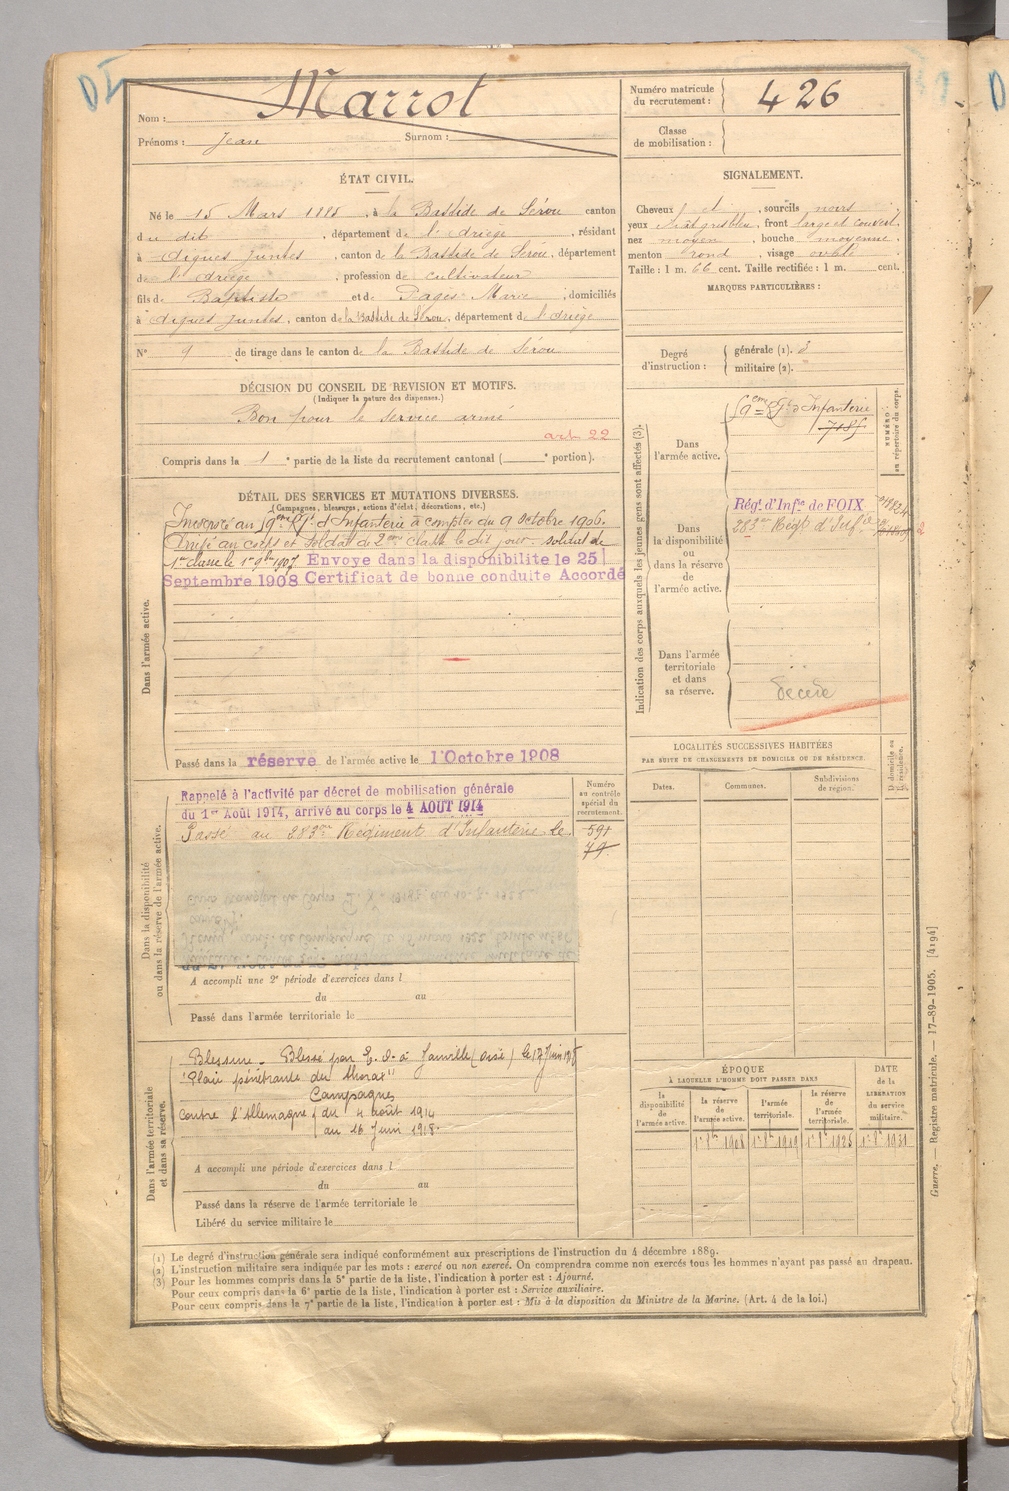 Marrot
Nom :
Prénoms : Jean Surnom :
Numéro matricule du recrutement : 426
Classe de mobilisation :
ÉTAT CIVIL.
Né le 15 Mars 1885, à la Bastide de Sérou canton
du dit, département de l'Ariège, résidant
à Aigues Juntes, canton de la Bastide de Sérou, département
de l'Ariège, profession de cultivateur
fils de Baptiste et de Pagès Marie, domiciliés
à Aigues Juntes, canton de la Bastide de Sérou, département de l'Ariège
N° 9 de tirage dans le canton de la Bastide de Sérou
SIGNALEMENT.
Cheveux , sourcils noirs
yeux , front large et couvert,
nez moyen, bouche moyenne,
menton rond, visage ovale
Taille : 1 m. 66 cent. Taille rectifiée : 1 m. cent.
MARQUES PARTICULIÈRES :
Degré d'instruction : générale (1). 3
militaire (2).
DÉCISION DU CONSEIL DE REVISION ET MOTIFS.
(Indiquer la nature des dispenses.)
Bon pour le service armé
art 22
Compris dans la 1e partie de la liste du recrutement cantonal ( e portion).
DÉTAIL DES SERVICES ET MUTATIONS DIVERSES.
(Campagnes, blessures, actions d'éclat, décorations, etc.)
Dans l'armée active.
Incorporé au 59eme Rgt d'Infanterie à compter du 9 Octobre 1906.
Arrivé au corps et soldat de 2eme classe le dit jour. soldat de
1re classe le 1er 9bre 1907 Envoye dans la disponibilite le 25
Septembre 1908 Certificat de bonne conduite Accordé
Passé dans la réserve de l'armée active le 1 Octobre 1908
Indication des corps auxquels les jeunes gens sont affectés (3).
Dans l'armée active.
59eme Rgt d'Infanterie
NUMÉRO : au répertoire du corps.
Dans la disponibilité ou dans la réserve de l'armée active.
Régt. d'Infie de FOIX
283me Régt d'Infie
Dans l'armée territoriale et dans sa réserve.
Décédé
Dans la disponibilité ou dans la réserve de l'armée active.
Rappelé à l'activité par décret de mobilisation générale
du 1er Août 1914, arrivé au corps le 4 AOUT 1914
Passé au 283me Régiment d'Infanterie le
Numéro au contrôle spécial du recrutement.
591
79
A accompli une 2e période d'exercices dans l
du au
Passé dans l'armée territoriale le
LOCALITÉS SUCCESSIVES HABITÉES
PAR SUITE DE CHANGEMENTS DE DOMICILE OU DE RÉSIDENCE.
Dates.
Communes.
Subdivisions de région.
D domicile ou R résidence.
Dans l'armée territoriale et dans sa réserve.
Blessure - Blessé par E. d. à Janville (Oise) le 17 Juin 1918
"Plaie pénétrante du thorax"
Campagnes
Contre l'Allemagne du 4 août 1914
au 16 Juin 1918.
A accompli une période d'exercices dans l
du au
Passé dans la réserve de l'armée territoriale le
Libéré du service militaire le
ÉPOQUE
À LAQUELLE L'HOMME DOIT PASSER DANS
la disponibilité de l'armée active.
la réserve de l'armée active.
l'armée territoriale.
la réserve de l'armée territoriale.
DATE de la LIBÉRATION du service militaire.
1er 8bre 1908
1er 8bre 1919
1er 8bre 1925
1er 8bre 1931
(1) Le degré d'instruction générale sera indiqué conformément aux prescriptions de l'instruction du 4 décembre 1889.
(2) L'instruction militaire sera indiquée par les mots : exercé ou non exercé. On comprendra comme non exercés tous les hommes n'ayant pas passé au drapeau.
(3) Pour les hommes compris dans la 5e partie de la liste, l'indication à porter est : Ajourné.
Pour ceux compris dans la 6e partie de la liste, l'indication à porter est : Service auxiliaire.
Pour ceux compris dans la 7e partie de la liste, l'indication à porter est : Mis à la disposition du Ministre de la Marine. (Art. 4 de la loi.)
Guerre. — Registre matricule. — 17-89-1905. [4194]